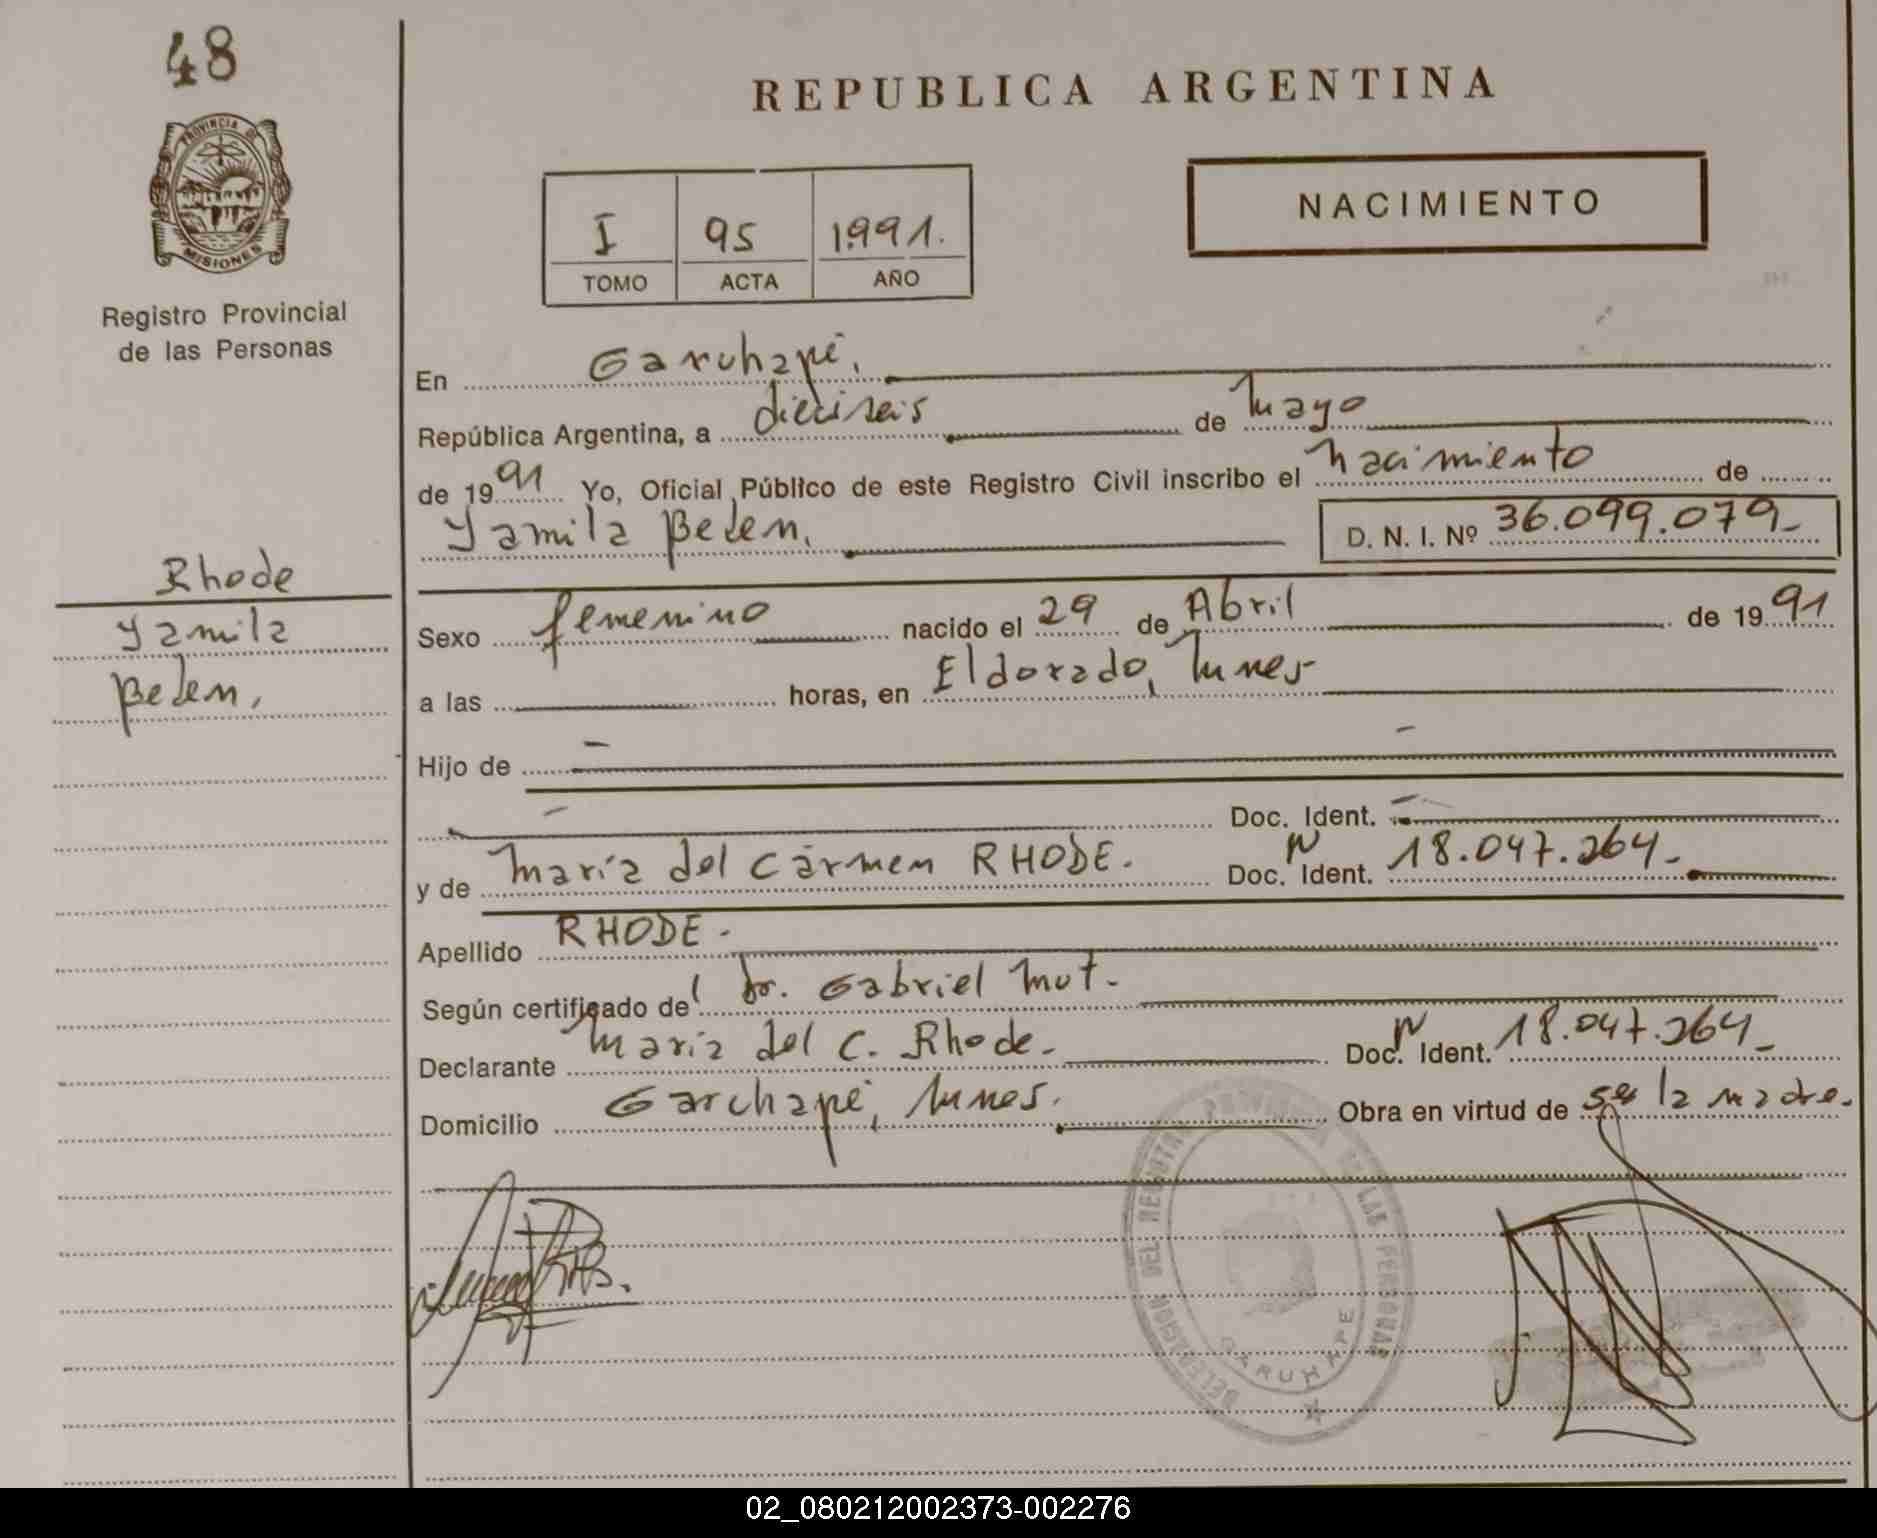 48
PROVINCIA DE
MISIONES
Registro Provincial
de las Personas
Rhode
Yamila
Belen,
REPUBLICA ARGENTINA
NACIMIENTO
I 95 1991.
TOMO ACTA AÑO
En Garuhapé,
República Argentina, a dieciseis de Mayo
de 1991 Yo, Oficial Público de este Registro Civil inscribo el nacimiento de
Yamila Belen, D. N. I. Nº 36.099.079-
Sexo femenino nacido el 29 de Abril de 1991
a las horas, en Eldorado, Mnes-
Hijo de -
- Doc. Ident. -
y de María del Cármen RHODE. Doc. N Ident. 18.047.264-
Apellido RHODE-
Según certificado del Dr. Gabriel Mut.
Declarante María del C. Rhode- Doc. N Ident. 18.047.264-
Domicilio Garchapé, Mnes. Obra en virtud de ser la madre.
DELEGACION DEL REGISTRO PROVINCIAL DE LAS PERSONAS
GARUHAPE
02_080212002373-002276